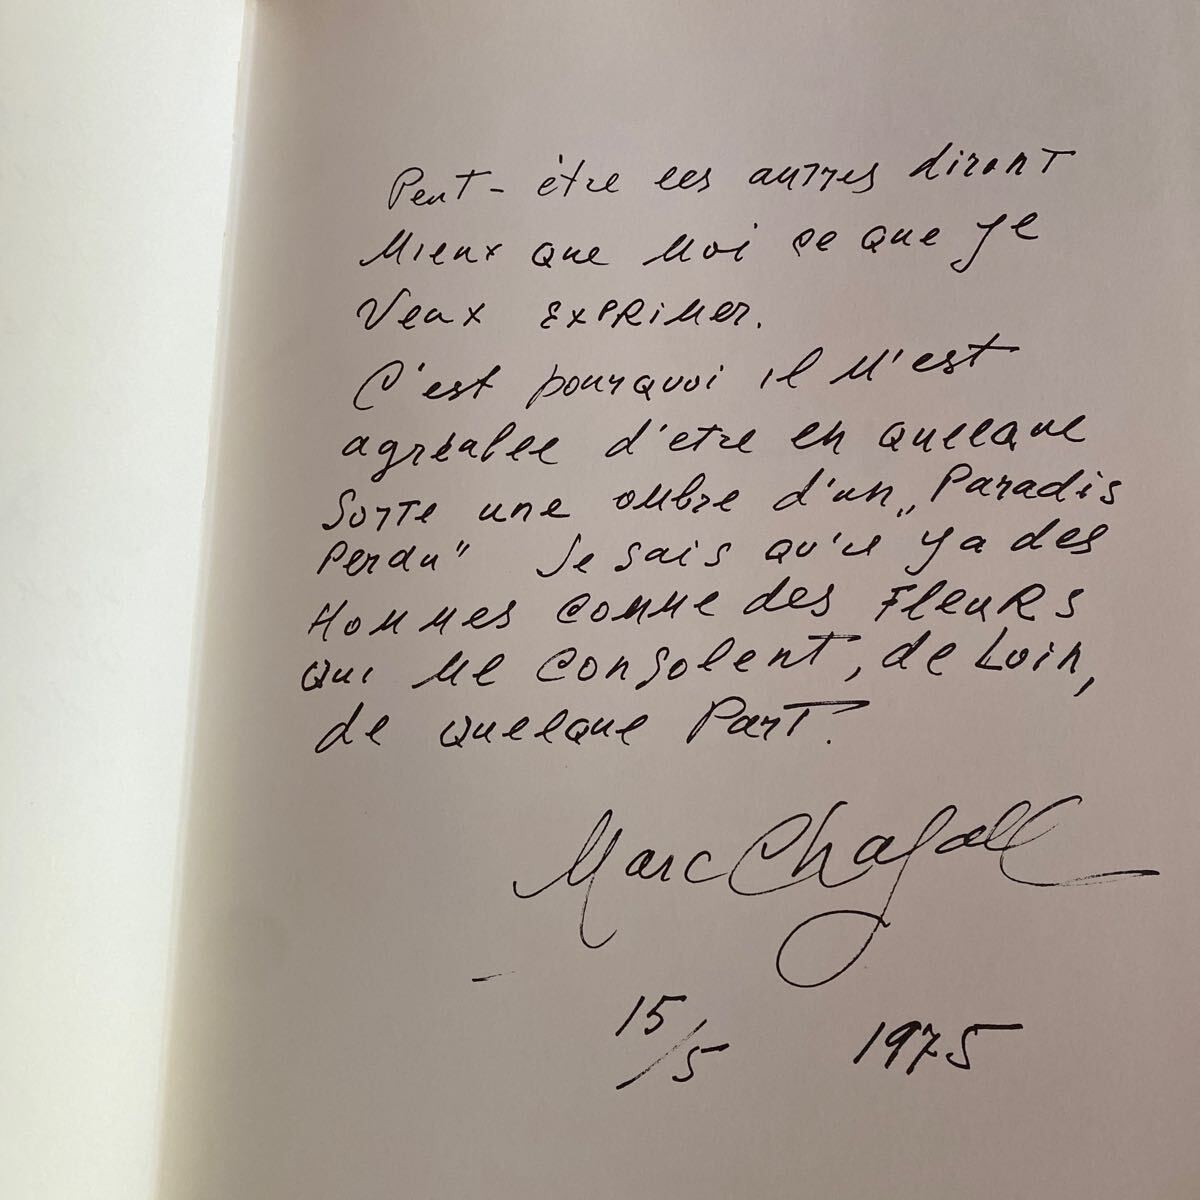 Peut-être les autres diront
mieux que moi ce que je
veux exprimer.
C'est pourquoi il m'est
agréable d'etre en quelque
sorte une ombre d'un „Paradis
Perdu" Je sais qu'il y a des
Hommes comme des Fleurs
qui me consolent, de Loin,
de quelque Part.
Marc Chagall
15/5 1975